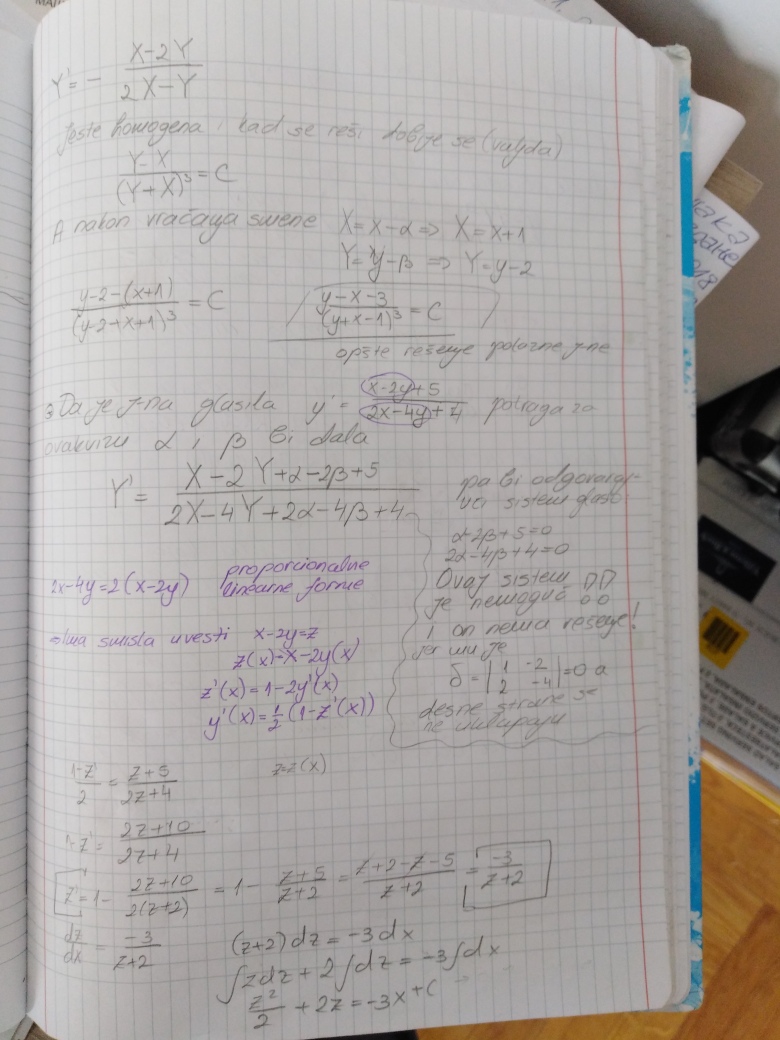 Y' = - (X-2Y)/(2X-Y)
Jeste homogena i kad se reši dobije se (valjda)
(Y-X)/(Y+X)³ = C
A nakon vraćanja smene X=x-α => X=x+1
Y=y-β => Y=y-2
(y-2-(x+1))/(y-2+x+1)³ = C
(y-x-3)/(y+x-1)³ = C
opšte rešenje polazne j-ne
3. Da je j-na glasila y' = (x-2y+5)/(2x-4y+4) potraga za
ovakvim α i β bi dala
Y' = (X-2Y+α-2β+5)/(2X-4Y+2α-4β+4)
pa bi odgovaraju-
ući sistem glasio:
α-2β+5=0
2α-4β+4=0
Ovaj sistem
je nemoguć
i on nema rešenje!
jer mu je
δ = |1 -2; 2 -4| = 0 a
desne strane se
ne
2x-4y=2(x-2y) proporcionalne
linearne forme
Ima smisla uvesti x-2y=z
z(x)=x-2y(x)
z'(x)=1-2y'(x)
y'(x)=½(1-z'(x))
(1-z')/2 = (z+5)/(2z+4)
z=z(x)
1-z' = (2z+10)/(2z+4)
z' = 1 - (2z+10)/(2(z+2)) = 1 - (z+5)/(z+2) = (z+2-z-5)/(z+2) = -3/(z+2)
dz/dx = -3/(z+2)
(z+2)dz = -3dx
∫zdz + 2∫dz = -3∫dx
z²/2 + 2z = -3x + C